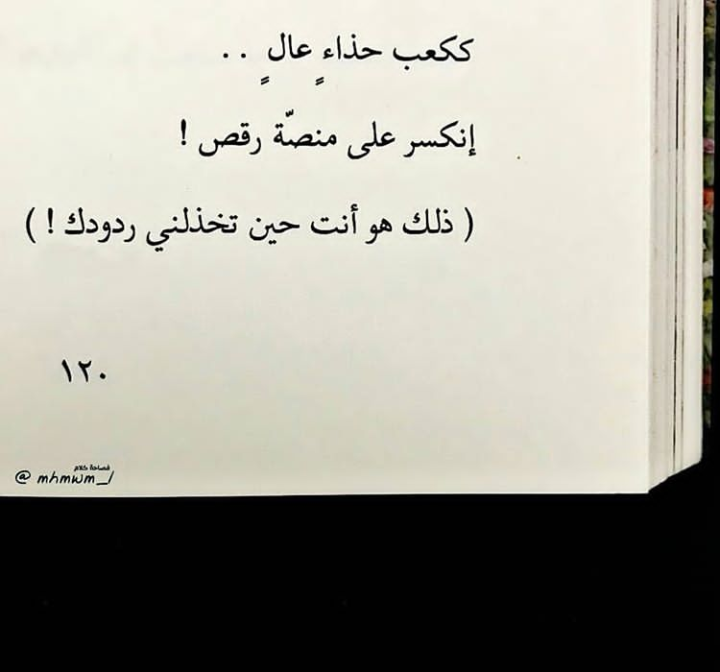 ككعب حذاءٍ عالٍ ..
إنكسر على منصّة رقص !
( ذلك هو أنت حين تخذلني ردودك ! )
١٢٠
فصاحة كلام
@mhmwm_l